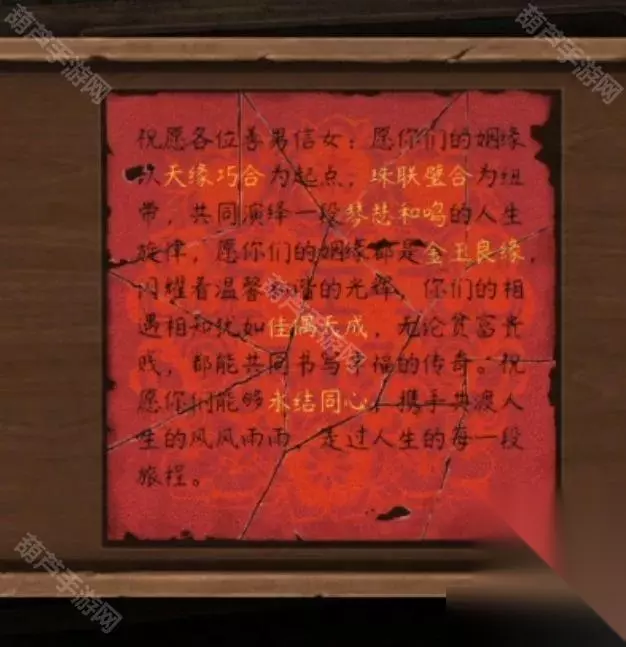 祝愿各位善男信女：愿你们的姻缘
以天缘巧合为起点，珠联璧合为纽
带，共同演绎一段琴瑟和鸣的人生
旋律，愿你们的姻缘都是金玉良缘，
闪耀着温馨和谐的光辉，你们的相
遇相知犹如佳偶天成，无论贫富贵
贱，都能共同书写幸福的传奇。祝
愿你们能够永结同心，携手共渡人
生的风风雨雨，走过人生的每一段
旅程。
葫芦手游网
葫芦手游网
葫芦手游网
葫芦手游网
葫芦手游网